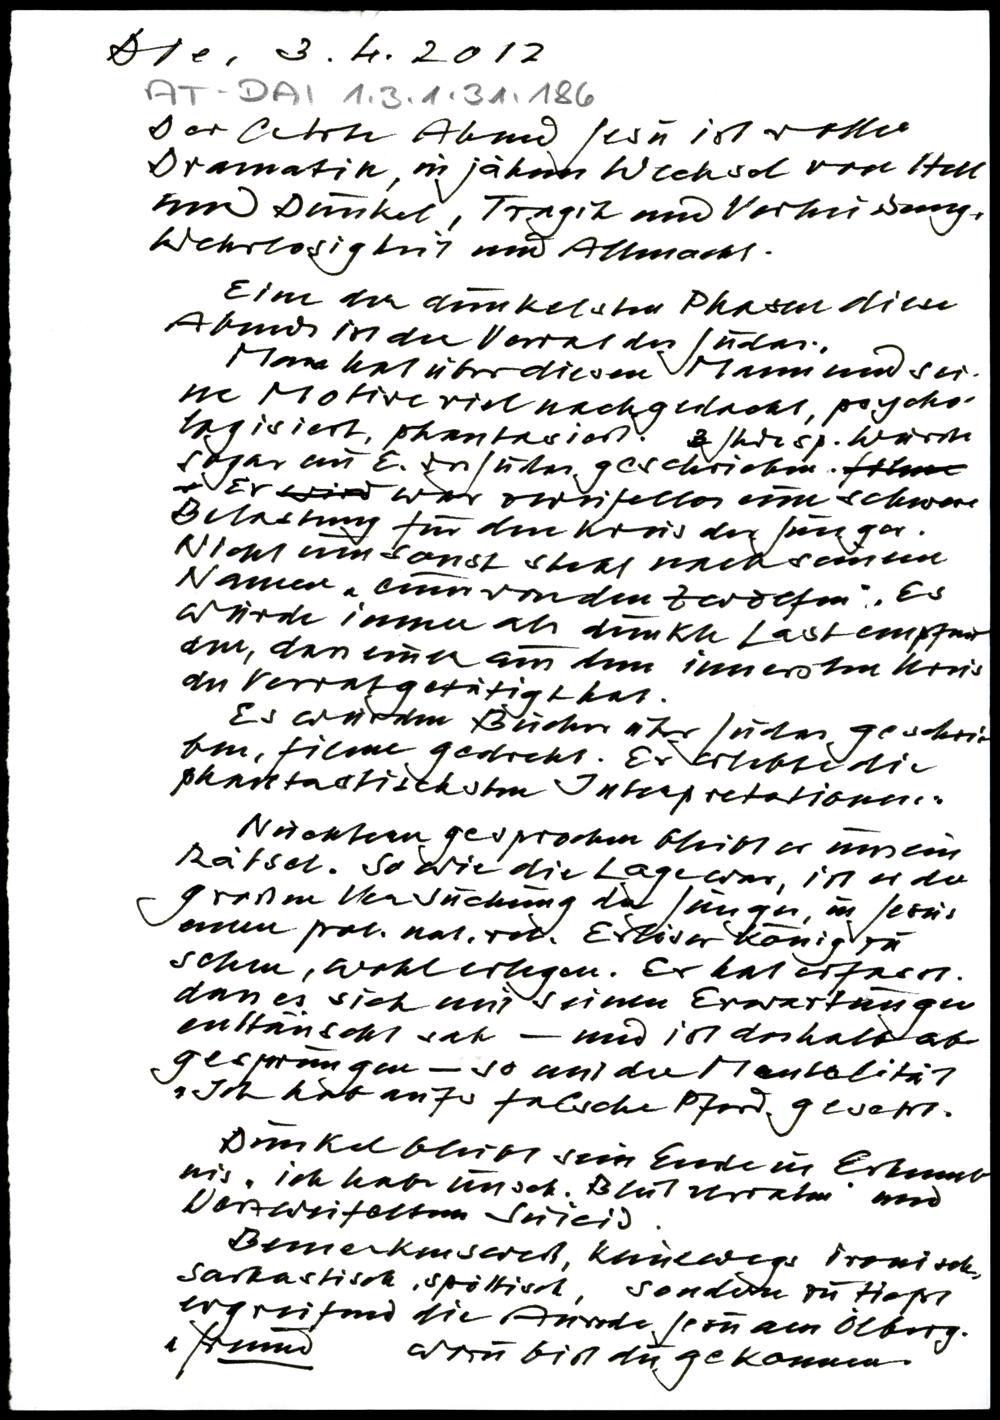 Die, 3.4.2012
AT-DAI 1.3.1.31.186
Der letzte Abend Jesu ist voller
Dramatik, in jähem Wechsel von Hell
und Dunkel, Tragik und Verheissung,
Wehrlosigkeit und Allmacht.
Eine der dunkelsten Phasen dieses
Abends ist der Verrat des Judas.
Man hat über diesen Mann und sei-
ne Motive viel nachgedacht, psycho-
logisiert, phantasiert. wurde
sogar ein E. geschrieben.
Er wird war zweifellos eine schwere
Belastung für den Kreis der Jünger.
Nicht umsonst steht nach seinem
Namen „einer von den Zwölfen". Es
wurde immer als dunkle Last empfun
den, dass einer aus dem innersten Kreis
den Verrat getätigt hat.
Es wurden Bücher über Judas geschrie
ben, Filme gedreht. Er erlebte die
phantastischsten Interpretationen.
Nüchtern gesprochen bleibt er uns ein
Rätsel. So wie die Lage war, ist er der
großen Versuchung der Jünger, in Jesus
einen pol. nat. rel. Erlöser König zu
sehen, wohl erlegen. Er hat erfasst,
dass es sich mit seinen Erwartungen
enttäuscht sah – und ist deshalb ab
gesprungen – so mit der Mentalität
„Ich hab aufs falsche Pferd gesetzt.
Dunkel bleibt sein Ende in Erkennt
nis „ich habe unsch. Blut verraten" und
Verzweifeltem Suicid.
Bemerkenswert, keineswegs ironisch,
sarkastisch, spöttisch, sondern zu tiefst
ergreifend die Anrede Jesu am Ölberg.
„Freund wozu bist du gekommen.